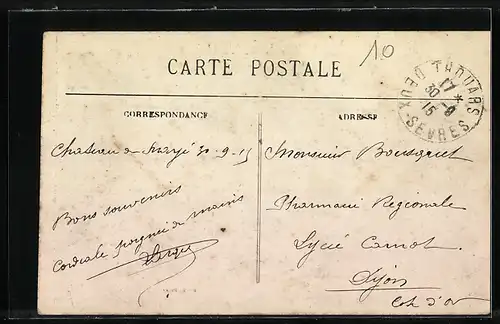 10
CARTE POSTALE
THOUARS
17 *
30 -9
15
DEUX SEVRES
CORRESPONDANCE
ADRESSE
Chateau de 30-9-15
Monsieur Bousquet
Bons souvenirs
Pharmacie Régionale
Cordiale poignée de mains
Lycée Carnot
Dijon
Cote d'Or